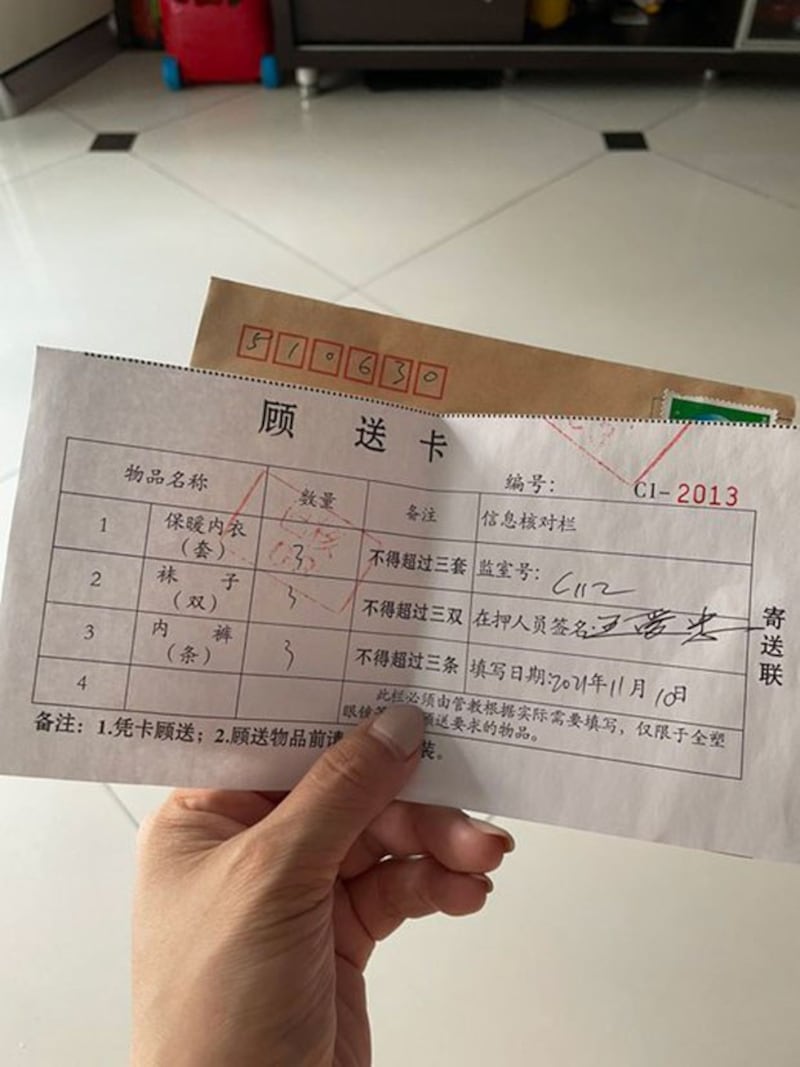 510630
顾送卡
编号： C1-2013
物品名称 数量 备注 信息核对栏
1 保暖内衣（套） 3 不得超过三套 监室号：C112
2 袜子（双） 3 不得超过三双 在押人员签名：
3 内裤（条） 3 不得超过三条 填写日期：2021年11月10日
4 此栏必须由管教根据实际需要填写，仅限于全塑
眼镜 顾送要求的物品。
备注：1.凭卡顾送；2.顾送物品前请 装。
寄送联